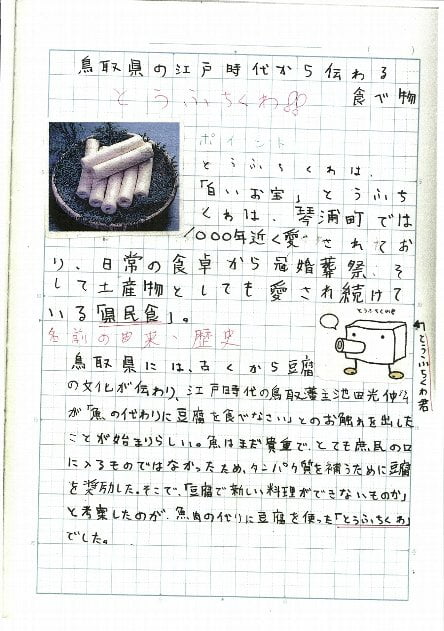 鳥取県の江戸時代から伝わる
食べ物
とうふちくわ
ポイント
とうふちくわは、
「白いお宝」とうふち
くわは、琴浦町では
1000年近く愛されてお
り、日常の食卓から冠婚葬祭、そ
して土産物としても愛され続けて
いる「県民食」。
とうふちくわ君
名前の由来・歴史
鳥取県には、古くから豆腐
の文化が伝わり、江戸時代の鳥取藩主池田光仲公
が「魚の代わりに豆腐を食べなさい」とのお触れを出した
ことが始まりらしい。魚はまだ貴重で、とても庶民の口
に入るものではなかったため、タンパク質を補うために豆腐
を奨励した。そこで、「豆腐で新しい料理ができないものか」
と考案したのが、魚肉の代りに豆腐を使った「とうふちくわ」
でした。